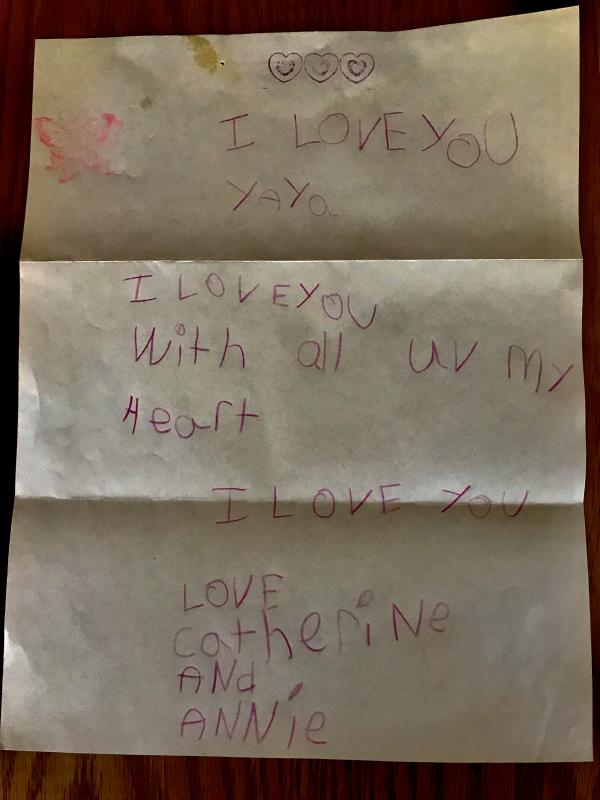 I LOVE YOU
YAYa
I LOVE YOU
With all uv My
Heart
I LOVE YOU
LOVE
Catherine
ANd
ANNie